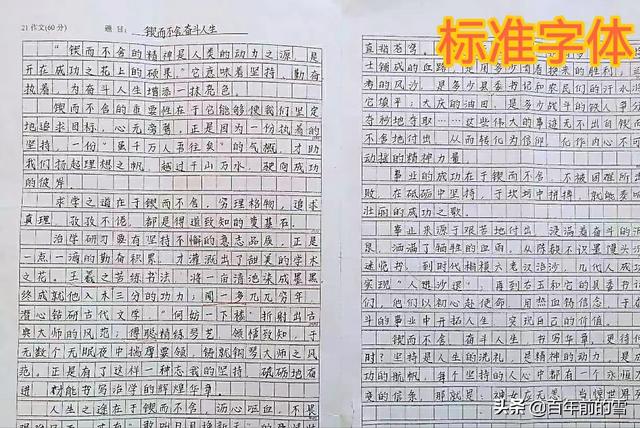 标准字体
21 作文(60分) 题目: 锲而不舍,奋斗人生
"锲而不舍的精神是人类的动力之源,是
开在成功之花上的硕果。"它意味着坚持、勤奋
执着,为奋斗人生增添一抹亮色。
锲而不舍的重要性在于它能够使我们坚定
地追求目标,心无旁骛。正是因为一份执着的
坚持,一份"虽千万人吾往矣"的气概,才助
我们扬起理想之帆,越过千山万水,驶向成功
的彼岸。
求学之道在于锲而不舍,穷理格物,追求
真理,孜孜不倦,都是得道致知的奠基石。
治学研习要有坚持不懈的意志品质。正是
一点一滴的勤奋积累,才灌溉出了甜美的学术
之花。王羲之苦练书法,将一亩清池染成墨黑,
终成就他入木三分的功力;闻一多兀兀穷年,
潜心钻研古代文学,"何妨一下楼"折射出古
典大师的风范;傅聪精练琴艺,领悟致知,于
无数个无眠夜中揣摩要领,铸就钢琴大师之风
范。正是有了这样一种志我的坚持,砥砺地奋
进,才能书写治学的辉煌华章。
人生之途在于锲而不舍,沥心呕血,不是
直指苍穹。
士铺成的血路,是用多少
考的风沙,是多少县委书记和农民们的汗水浇
它填平;大庆的油田,是多少战斗的铁人争分
夺秒地夺取……这些伟大的事迹无不出自锲而
不舍地付出,从而转化为信仰,化作内心不可
动摇的精神力量。
事业的成功在于锲而不舍,不被困难所
败,在砥砺中坚持,于坎坷中拼搏,就能奏
壮丽的成功之歌。
事业来源于艰苦地付出,浸满着奋斗的
泉,洒满了牺牲的血雨。从陈毅不识墨馒头
迷览书,到时代楷模六老汉治沙,几代人
实现"人进沙退",再到右玉和它的县委书记
们,他们以初心赴使命,用热血铸信念,于
斗的事业中开拓人生,实现自己的价值。
锲而不舍,奋斗人生,书写华章,更待何
时?坚持是人生的洗礼,是精神的动力,是
功的航帆,每个坚持的人心中都有一个永恒
变的信条,那就是:神女应无恙,当惊世界
头条 @百年前的雪